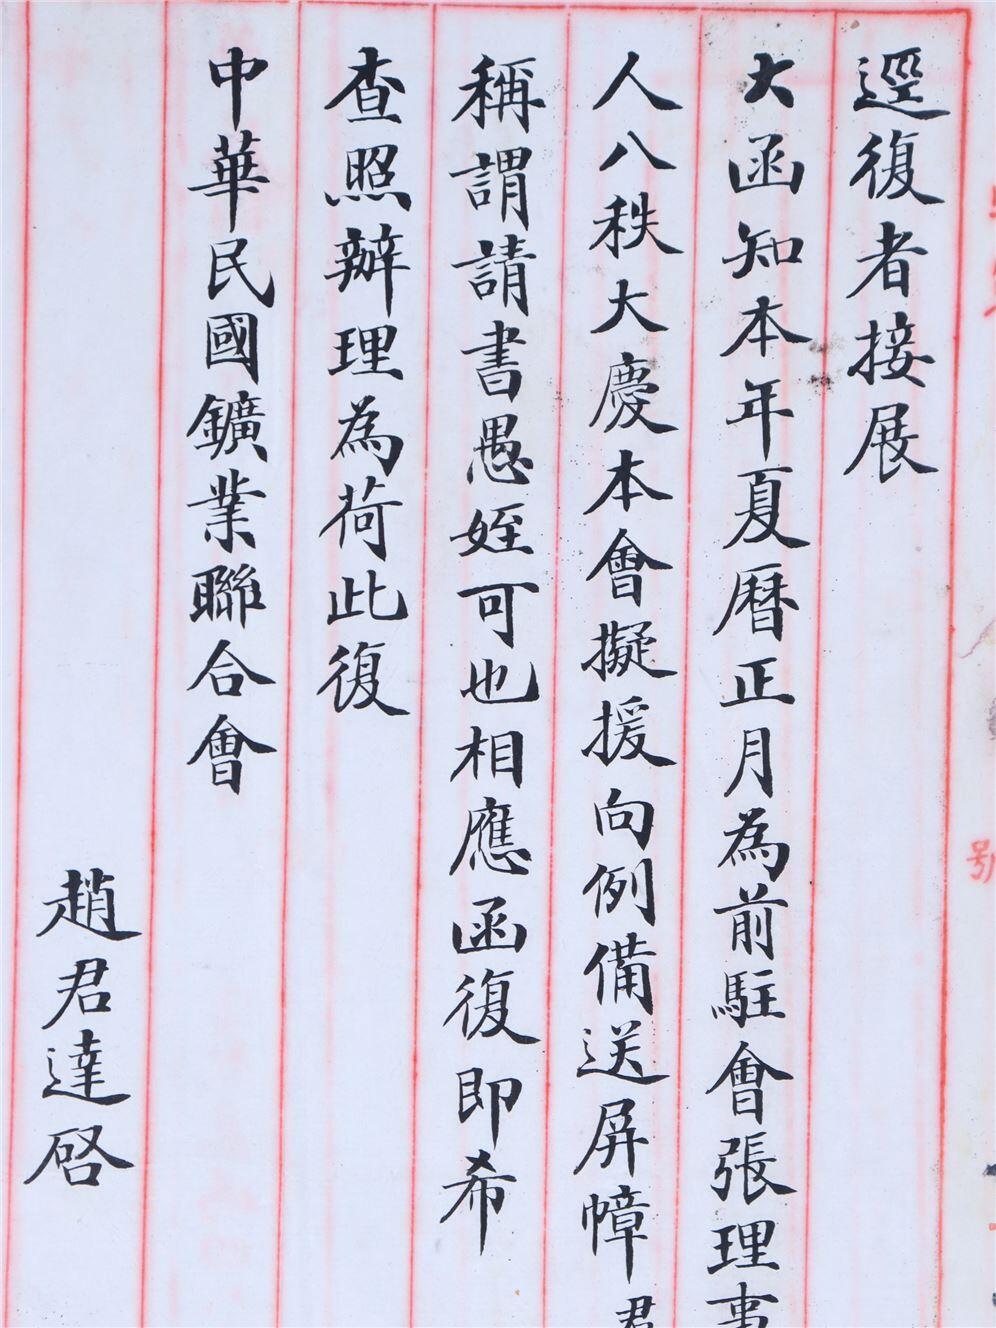 逕復者接展
大函知本年夏曆正月為前駐會張理事
人八秩大慶本會擬援向例備送屏幛君
稱謂請書愚姪可也相應函復即希
查照辦理為荷此復
中華民國鑛業聯合會
趙君達啓
号